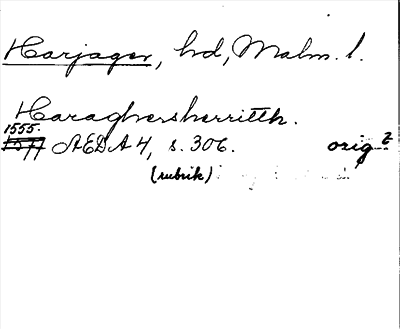 Harjager, hd, Malm. l.
Haraghersherritth.
1555.
AEDA 4, s. 306. orig?
(rubrik)